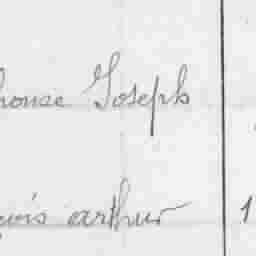 house Joseph
çois arthur 1